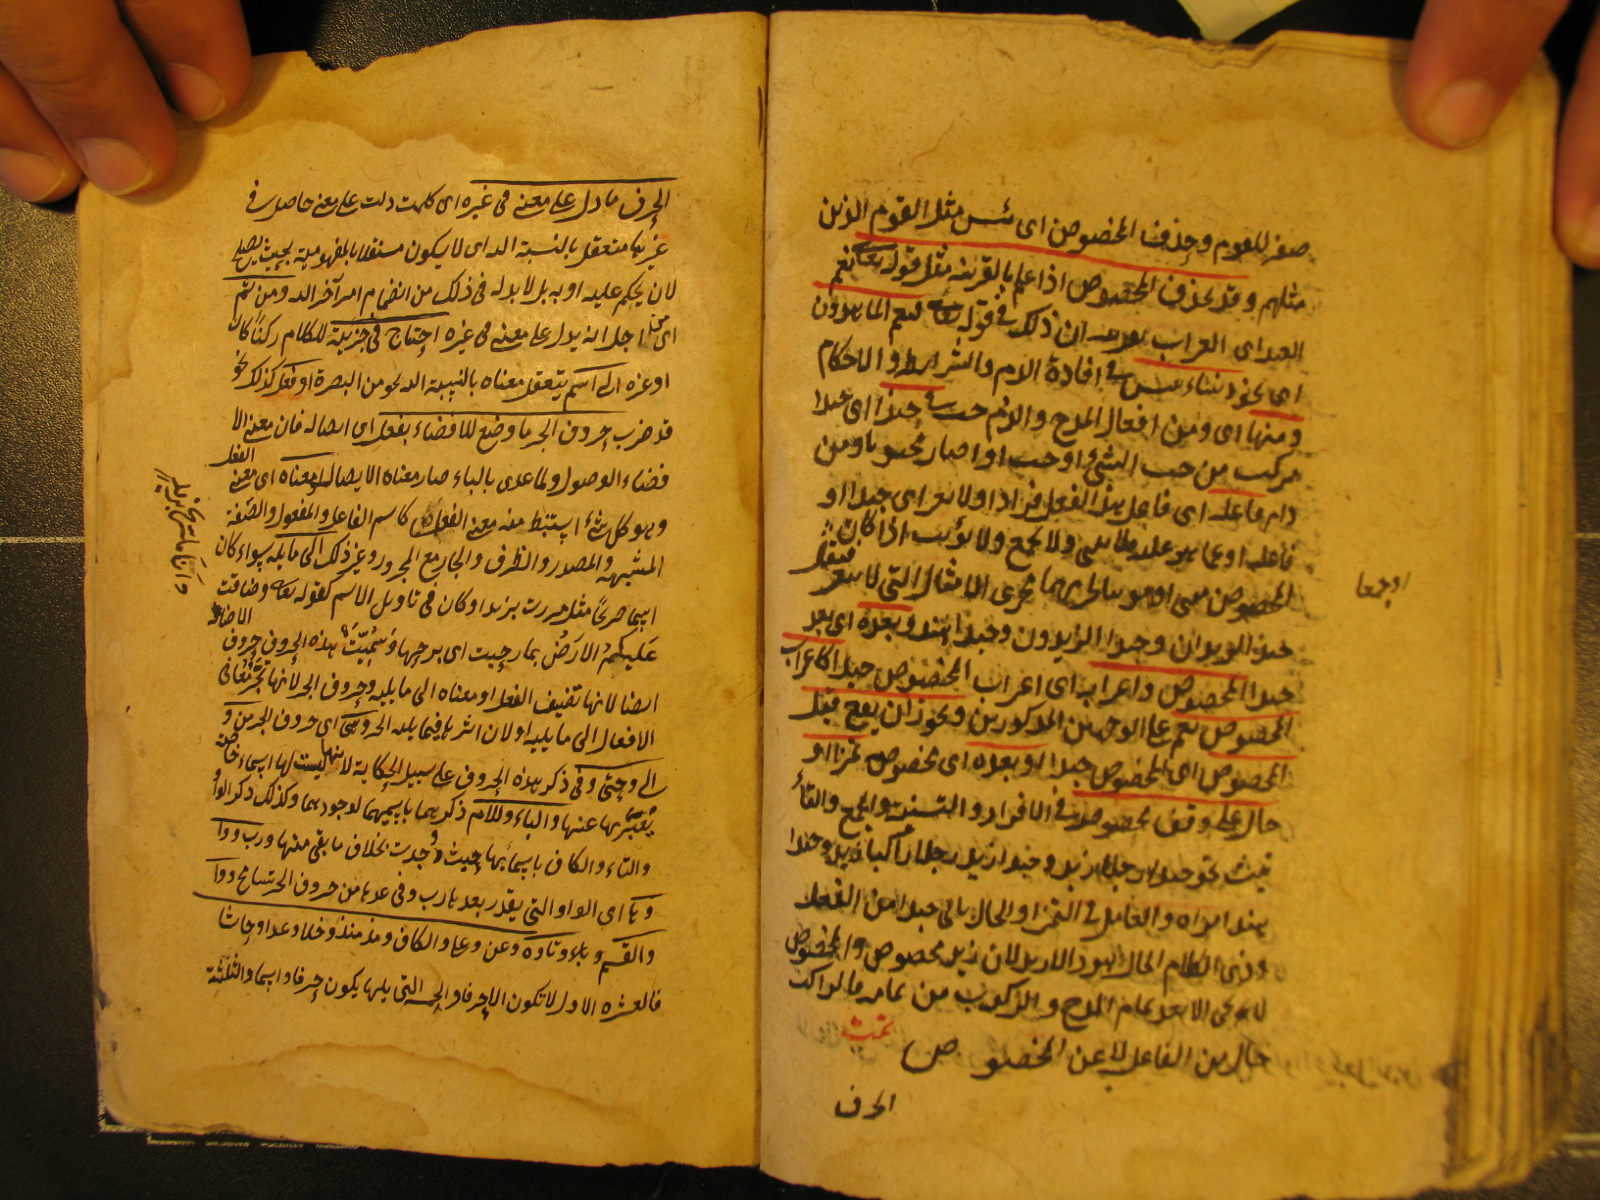 صفة للقوم وحذف المخصوص اى بئس مثل القوم الذين
مثلهم وقد يحذف المخصوص اذا علم بالقرينة مثل قوله تعالى نعم
العبد اى ان ذلك فى قوله تعالى فنعم الماهدون
اى نحن وساء مثل بئس فى افادة الذم والشرايط والاحكام
ومنها اى ومن افعال المدح والذم حب فى حبذا اى حبذا
مركب من حب الشئ او حب اذا صار محبوبا ومن
ذا فاعله اى فاعل هذا الفعل ذا ولا يتغير اى حبذا او
فاعله او ذا عما هو عليه فلا يثنى ولا يجمع ولا يؤنث اذا كان
المخصوص مثنى او مؤنثا لجريهما مجرى الامثال التى لا يتغير فيقل
او جمعا
حبذا الزيدان وحبذا الزيدون وحبذا هند وبعده اى بعد
حبذا المخصوص واعرابه اى اعراب المخصوص حبذا كاعراب
المخصوص نعم على الوجهين المذكورين ويجوز ان يقع قبل
المخصوص اى المخصوص حبذا او بعده اى مخصوص تمييز او
حال على وفق مخصوصه فى الافراد والتثنية والجمع والتأ
نيث نحو حبذا رجلا زيد وحبذا زيد رجلا وراكبا زيد وحبذا
هند امراة والعامل فى التمييز او الحال ما فى حبذا من الفعلية
وذى الحال هو ذا لا زيد لان زيد مخصوص والمخصوص
لا يجئ الا بعد تمام المدح والركوب من تمامه فالراكب
حال من الفاعل لا عن المخصوص
تمت
الحرف
الحرف ما دل على معنى فى غيره اى كلمة دلت على معنى حاصل فى
غيرها متعقل بالنسبة اليه اى لا يكون مستقلا بالمفهومية بحيث يصلح
لان يحكم عليه او به بل لا بد له فى ذلك من انضمام امر آخر اليه ومن ثم
اى من اجل انه يدل على معنى فى غيره احتاج فى جزئيته للكلام ركنا كان
او غيره الى اسم يتعقل معناه بالنسبة اليه نحو من البصرة او فعل كذلك نحو
قد ضرب حروف الجر ما وضع للافضاء بفعل اى ايصاله فان معنى الا
فضاء الوصول ولما عدى بالباء صار معناه الايصال او معناه اى معنى الفعل
وهو كل شئ استنبط منه معنى الفعل كاسم الفاعل والمفعول والصفة
المشبهة والمصدر والظرف والجار مع المجرور وغير ذلك الى ما يليه سواء كان
اسما صريحا مثل مررت بزيد او كان فى تاويل الاسم كقوله تعالى وضاقت
عليكم الارض بما رحبت اى برحبها وسميت هذه الحروف حروف الاضافة
ايضا لانها تضيف الفعل او معناه الى ما يليه وحروف الجر لانها تجر معانى
الافعال الى ما يليه او لان اثرها فيما يليه الجر وهى اى حروف الجر من و
الى وحتى وفى ذكر هذه الحروف على سبيل الحكاية لانها ليست لها اسماء خاصة
يعبر بها عنها والباء واللام ذكرهما باسميهما لوجودهما وكذلك ذكر الواو
والتاء والكاف باسمائها حيث وجدت بخلاف ما بقى منها ورب وواو
وها اى الواو التى يقدر بعدها رب وفى عدها من حروف الجر تسامح وواو
والقسم وباءه وتاءه وعن وعلى والكاف ومذ منذ وخلا وعدا وحاشا
فالعشرة الاول لا تكون الا حرفا والخمسة التى يليها يكون حرفا واسما والثلثة